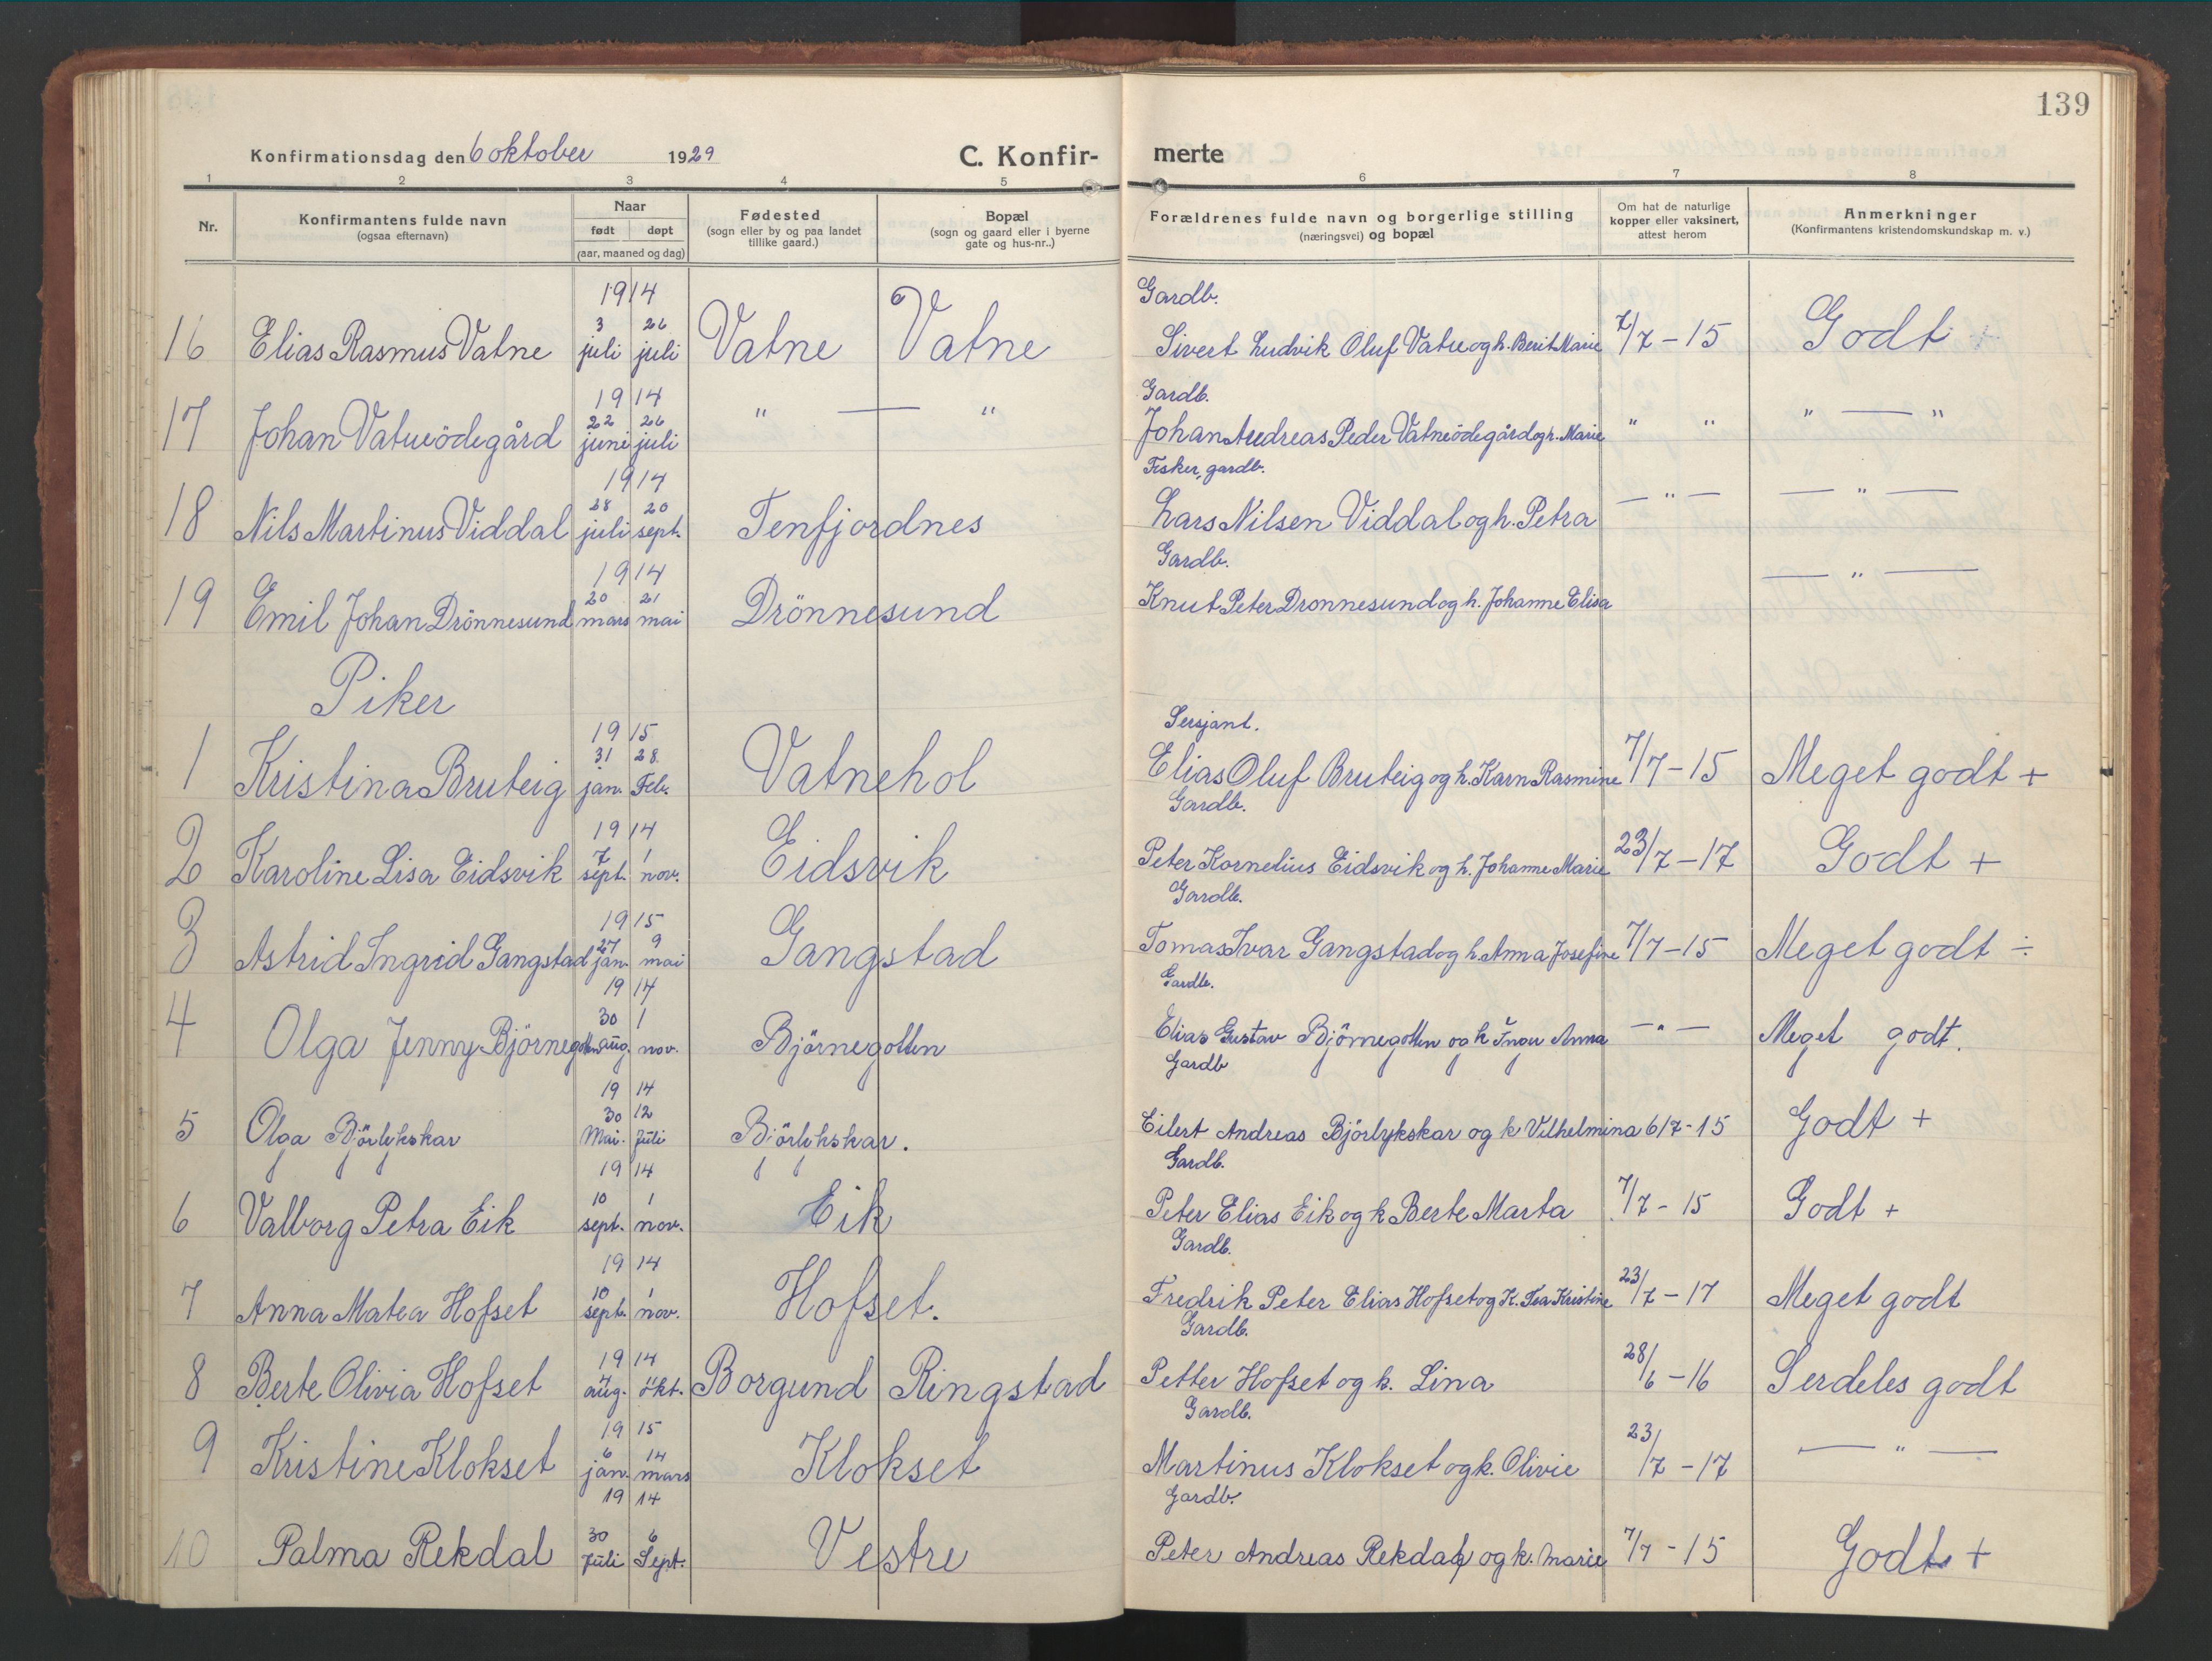 139
Konfirmationsdag den 6 oktober 1929 C. Konfir- merte
1 2 3 4 5 6 7 8
Nr. Konfirmantens fulde navn (ogsaa efternavn) Naar født døpt (aar, maaned og dag) Fødested (sogn eller by og paa landet tillike gaard.) Bopæl (sogn og gaard eller i byerne gate og hus-nr..) Forældrenes fulde navn og borgerlige stilling (næringsvei) og bopæl Om hat de naturlige kopper eller vaksinert, attest herom Anmerkninger (Konfirmantens kristendomskundskap m. v.)
1914 Gardb.
16 Elias Rasmus Vatne 3 juli 26 juli Vatne Vatne Sivert Ludvik Oluf Vatne og h. Berit Marie 7/7 - 15 Godt +
1914 Gardb.
17 Johan Vatneödegård 22 juni 26 juli " — " Johan Andreas Peder Vatneödegård og h. Marie " " " — "
1914 Fisker, gardb.
18 Nils Martinus Viddal 28 juli 20 sept. Tenfjordnes Lars Nilsen Viddal og h. Petra — " — — " —
1914 Gardb.
19 Emil Johan Drönnesund 20 mars 21 mai Drönnesund Knut Peter Dronnesund og h. Johanne Elisa — " —
Piker
1915 Sersjant.
1 Kristina Bruteig 31 jan. 28. Feb. Vatnehol Elias Oluf Bruteig og h. Karn Rasmine 7/7 - 15 Meget godt +
1914 Gardb.
2 Karoline Lisa Eidsvik 7 sept. 1 nov. Eidsvik Peter Kornelius Eidsvik og h. Johanne Marie 23/7 - 17 Godt +
1915 Gardb.
3 Astrid Ingrid Gangstad 27 jan. 9 mai Gangstad Tomas Ivar Gangstad og h. Anna Josefine 7/7 - 15 Meget godt ÷
1914 Gardb.
4 Olga Jenny Björnegotten 30 aug. 1 nov. Björnegotten Elias Gustav Björnegotten og k Inga Anna — " — Meget godt.
1914 Gardb
5 Olga Björlykskar 30 Mai. 12 Juli Björlykskar. Eilert Andreas Björlykskar og k Vilhelmina 6/7 - 15 Godt +
1914 Gardb.
6 Valborg Petra Eik 10 sept. 1 nov. Eik Peter Elias Eik og k Berte Marta 7/7 - 15 Godt +
1914 Gardb.
7 Anna Matea Hofset 10 sept. 1 nov. Hofset. Fredrik Peter Elias Hofset og K. Tea Kristine 23/7 - 17 Meget godt
1914 Gardb.
8 Berte Olivia Hofset aug. okt. Borgund Ringstad Petter Hofset og k. Lina 28/6 - 16 Serdeles godt
1915 Gardb.
9 Kristine Klokset 6 jan. 14 mars Klokset Martinus Klokset og k. Olivie 23/7 - 17 — " —
1914 Gardb.
10 Palma Rekdal 30 Juli 6 Sept. Vestre Peter Andreas Rekdal og k. Marie 7/7 - 15 Godt +